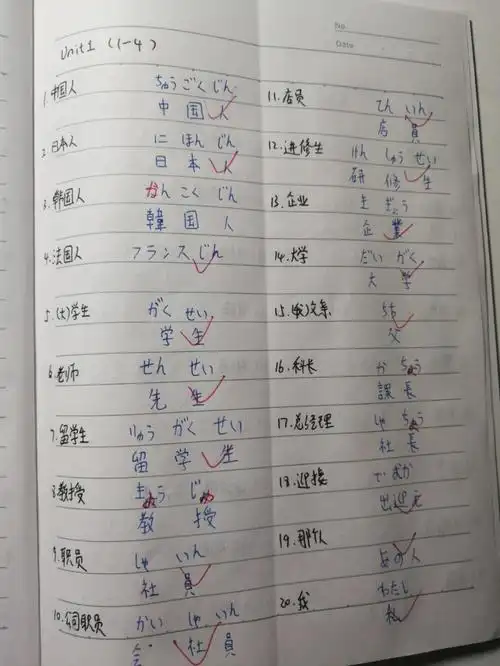 No.
Date
Unit1 (1-4)
1.中国人 ちゅうごくじん
中国人
2.日本人 にほんじん
日本人
3.韩国人 かんこくじん
韓国人
4.法国人 フランスじん
5.(大)学生 がくせい
学生
6.老师 せんせい
先生
7.留学生 りゅうがくせい
留学生
8.教授 きょうじゅ
教授
9.职员 しゃいん
社員
10.公司职员 かいしゃいん
会社員
11.店员 てんいん
店員
12.进修生 けんしゅうせい
研修生
13.企业 きぎょう
企業
14.大学 だいがく
大学
15.(我)父亲 ちち
父
16.科长 かちょう
課長
17.总经理 しゃちょう
社長
18.迎接 でむか
出迎え
19.那个人
あの人
20.我 わたし
私